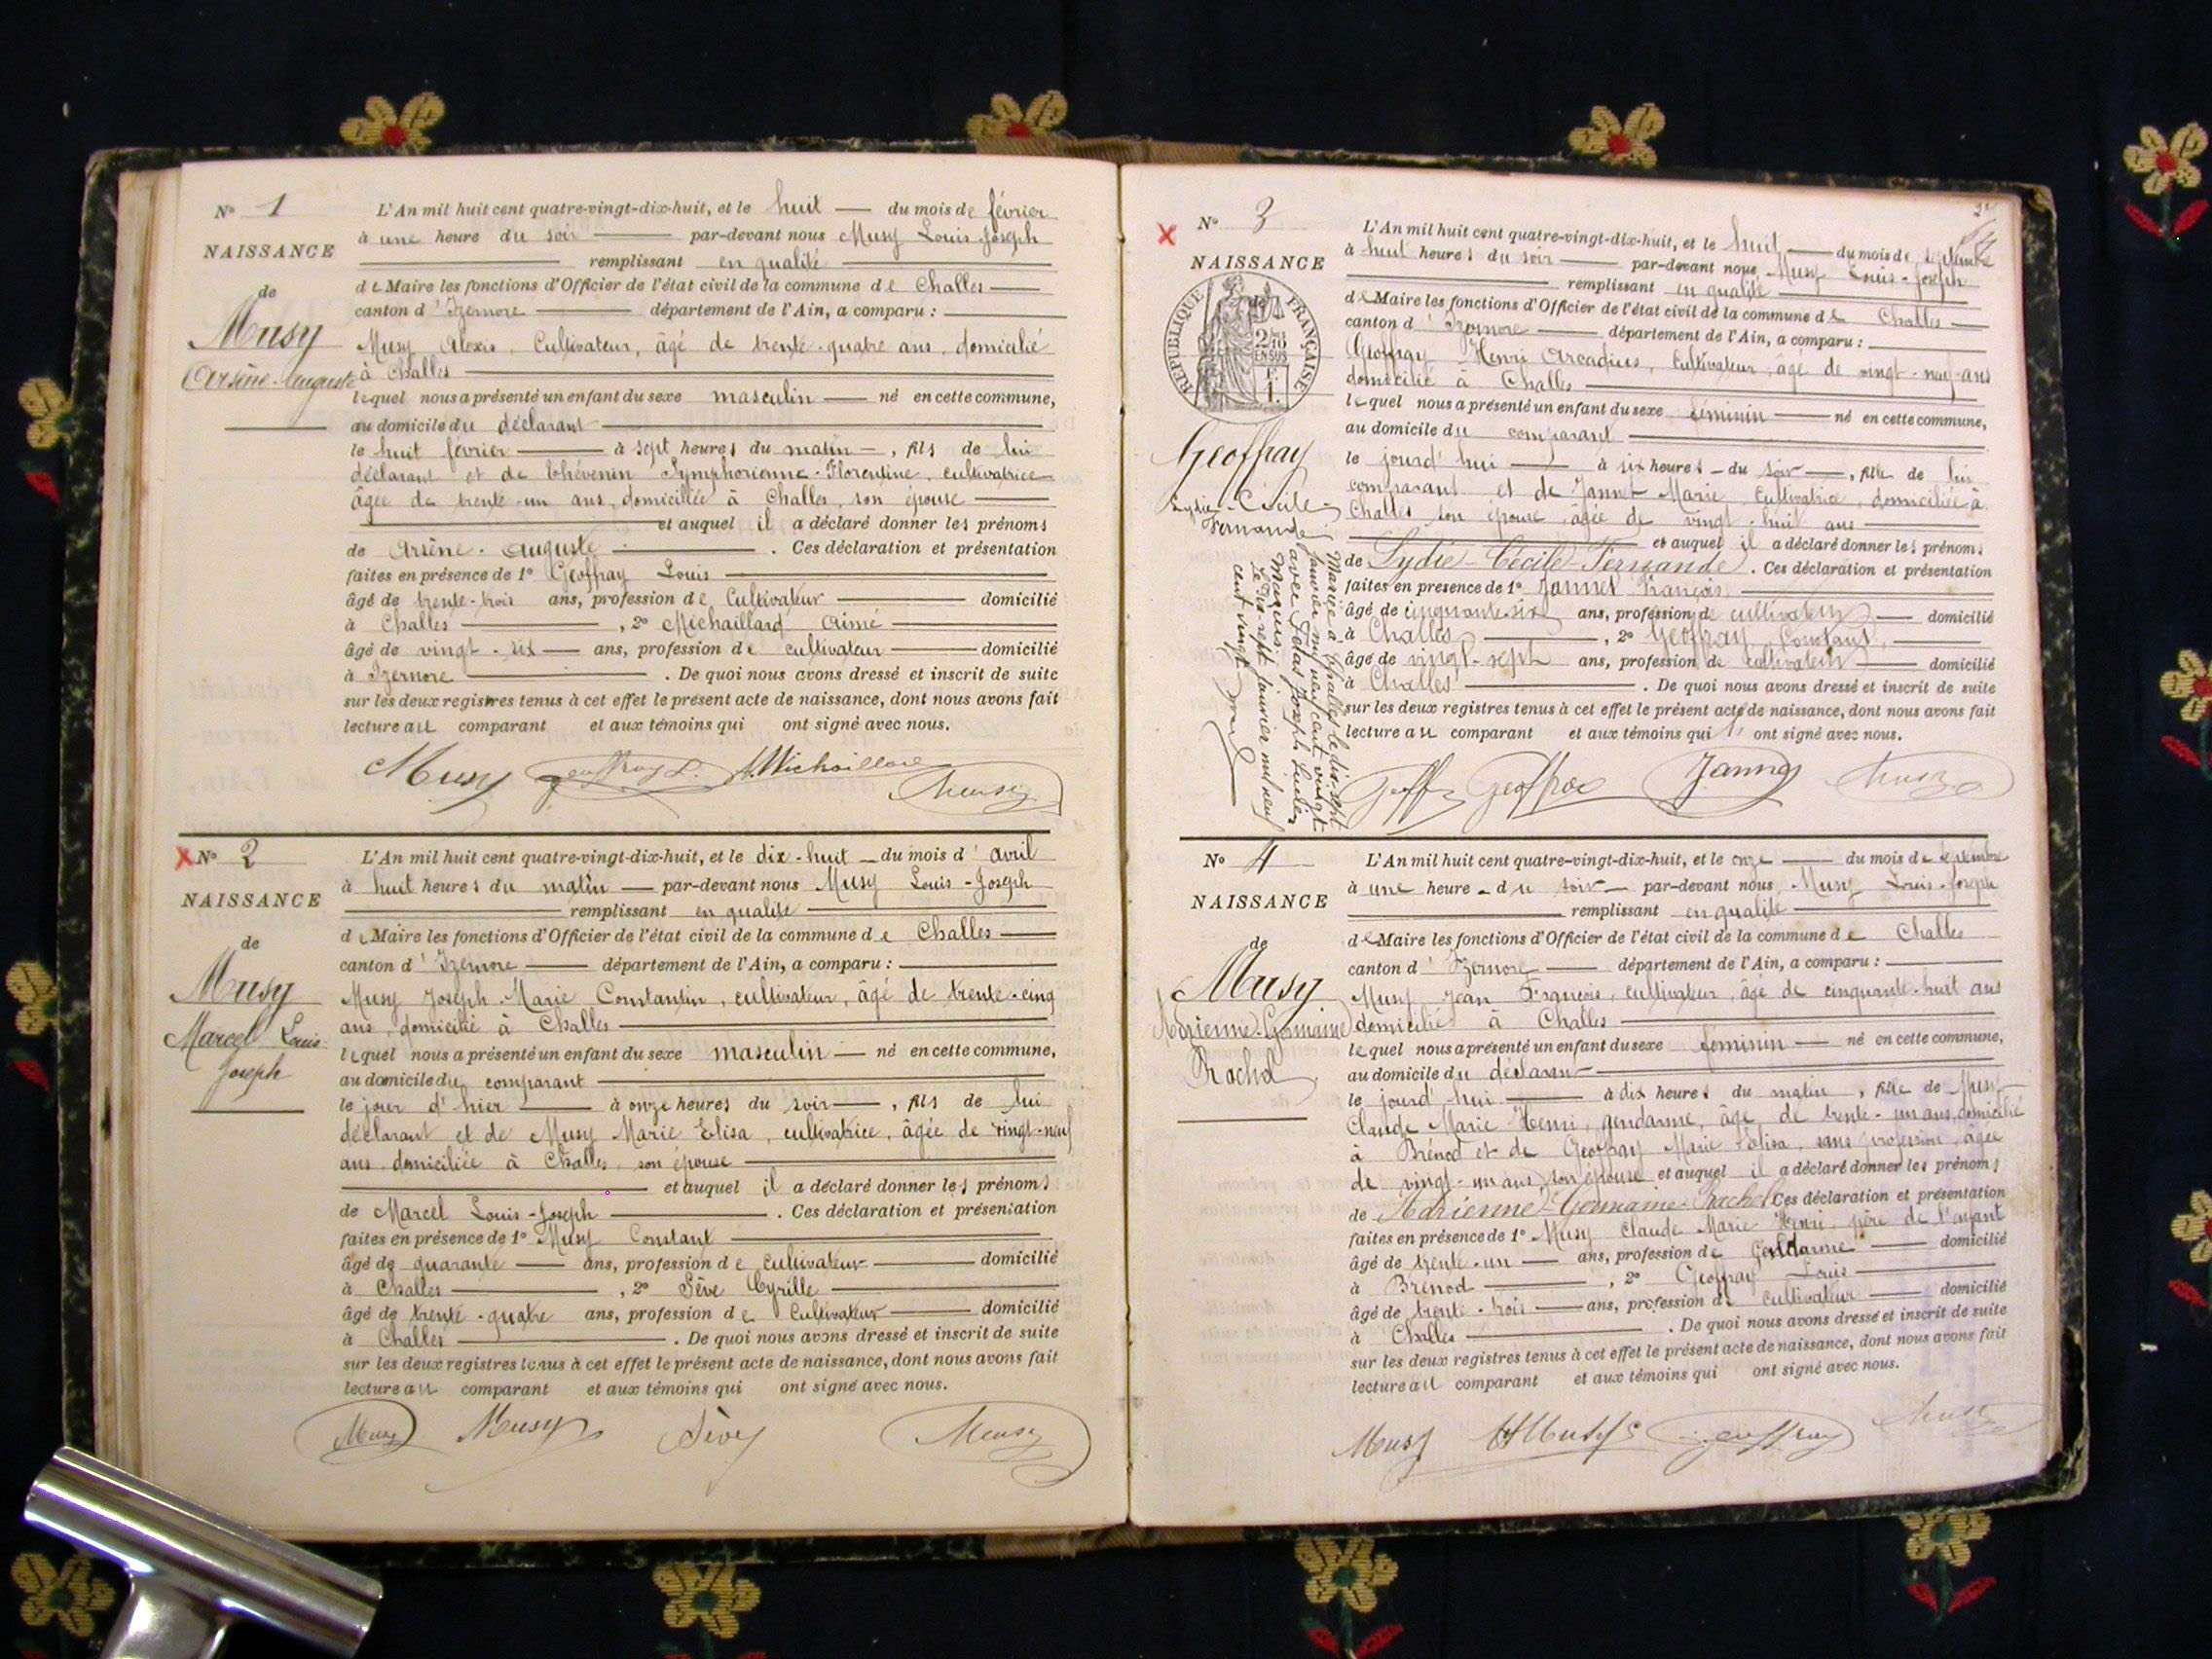 N° 1
NAISSANCE
de
Musy
Arsène-Auguste
L'An mil huit cent quatre-vingt-dix-huit, et le huit du mois de février
à une heure du soir par-devant nous Musy Louis-Joseph
remplissant en qualité
de Maire les fonctions d'Officier de l'état civil de la commune de Challes
canton d'Izernore département de l'Ain, a comparu :
Musy Alexis, Cultivateur, âgé de trente-quatre ans, domicilié
à Challes
lequel nous a présenté un enfant du sexe masculin né en cette commune,
au domicile du déclarant
le huit février à sept heures du matin, fils de lui
déclarant et de Thévenin Symphorienne-Florentine, cultivatrice
âgée de trente-un ans, domiciliée à Challes, son épouse
et auquel il a déclaré donner les prénoms
de Arsène-Auguste. Ces déclaration et présentation
faites en présence de 1° Geoffray Louis
âgé de trente-trois ans, profession de Cultivateur domicilié
à Challes, 2° Michaillard Aimé
âgé de vingt-six ans, profession de cultivateur domicilié
à Izernore. De quoi nous avons dressé et inscrit de suite
sur les deux registres tenus à cet effet le présent acte de naissance, dont nous avons fait
lecture au comparant et aux témoins qui ont signé avec nous.
Musy Geoffray L. Michaillard Musy
N° 2
NAISSANCE
de
Musy
Marcel Louis-
Joseph
L'An mil huit cent quatre-vingt-dix-huit, et le dix-huit du mois d'avril
à huit heures du matin par-devant nous Musy Louis-Joseph
remplissant en qualité
de Maire les fonctions d'Officier de l'état civil de la commune de Challes
canton d'Izernore département de l'Ain, a comparu :
Musy Joseph-Marie Constantin, cultivateur, âgé de trente-cinq
ans, domicilié à Challes
lequel nous a présenté un enfant du sexe masculin né en cette commune,
au domicile du comparant
le jour d'hier à onze heures du soir, fils de lui
déclarant et de Musy Marie Elisa, cultivatrice, âgée de vingt-neuf
ans, domiciliée à Challes, son épouse
et auquel il a déclaré donner les prénoms
de Marcel Louis-Joseph. Ces déclaration et présentation
faites en présence de 1° Musy Constant
âgé de quarante ans, profession de cultivateur domicilié
à Challes, 2° Sève Cyrille
âgé de trente-quatre ans, profession de Cultivateur domicilié
à Challes. De quoi nous avons dressé et inscrit de suite
sur les deux registres tenus à cet effet le présent acte de naissance, dont nous avons fait
lecture au comparant et aux témoins qui ont signé avec nous.
Musy Musy Sève Musy
N° 3
NAISSANCE
RÉPUBLIQUE FRANÇAISE
2/10 EN SUS
Geoffray
Lydie-Cécile-
Fernande
Mariée à Challes le dix-sept
janvier mil neuf cent vingt
avec Jolas Joseph Lucien
Marius.
Le dix-sept janvier mil neuf
cent vingt
L'An mil huit cent quatre-vingt-dix-huit, et le huit du mois de septembre
à huit heures du soir par-devant nous Musy Louis-Joseph
remplissant en qualité
de Maire les fonctions d'Officier de l'état civil de la commune de Challes
canton d'Izernore département de l'Ain, a comparu :
Geoffray Henri Arcadius, Cultivateur, âgé de vingt-neuf ans
domicilié à Challes
lequel nous a présenté un enfant du sexe féminin né en cette commune,
au domicile du comparant
le jourd'hui à six heures du soir, fille de lui
comparant et de Jannet Marie, Cultivatrice, domiciliée à
Challes son épouse, âgée de vingt-huit ans
et auquel il a déclaré donner les prénoms
de Lydie-Cécile-Fernande. Ces déclaration et présentation
faites en présence de 1° Jannet François
âgé de cinquante-six ans, profession de cultivateur domicilié
à Challes, 2° Geoffray Constant,
âgé de vingt-sept ans, profession de cultivateur domicilié
à Challes. De quoi nous avons dressé et inscrit de suite
sur les deux registres tenus à cet effet le présent acte de naissance, dont nous avons fait
lecture au comparant et aux témoins qui ont signé avec nous.
Geoffray Jannet Musy
N° 4
NAISSANCE
de
Musy
Adrienne-Germaine
Rachel
L'An mil huit cent quatre-vingt-dix-huit, et le onze du mois de septembre
à une heure du soir par-devant nous Musy Louis-Joseph
remplissant en qualité
de Maire les fonctions d'Officier de l'état civil de la commune de Challes
canton d'Izernore département de l'Ain, a comparu :
Musy Jean François, cultivateur, âgé de cinquante-huit ans
domicilié à Challes
lequel nous a présenté un enfant du sexe féminin né en cette commune,
au domicile du déclarant
le jourd'hui à dix heures du matin, fille de Musy
Claude Marie Henri, gendarme, âgé de trente-un ans, domicilié
à Brénod et de Geoffray Marie Elisa, sans profession, âgée
de vingt-un ans, son épouse et auquel il a déclaré donner les prénoms
de Adrienne-Germaine-Rachel Ces déclaration et présentation
faites en présence de 1° Musy Claude Marie Henri, père de l'enfant
âgé de trente-un ans, profession de Gendarme domicilié
à Brénod, 2° Geoffray Louis
âgé de trente-trois ans, profession de cultivateur domicilié
à Challes. De quoi nous avons dressé et inscrit de suite
sur les deux registres tenus à cet effet le présent acte de naissance, dont nous avons fait
lecture au comparant et aux témoins qui ont signé avec nous.
Musy Musy Geoffray Musy